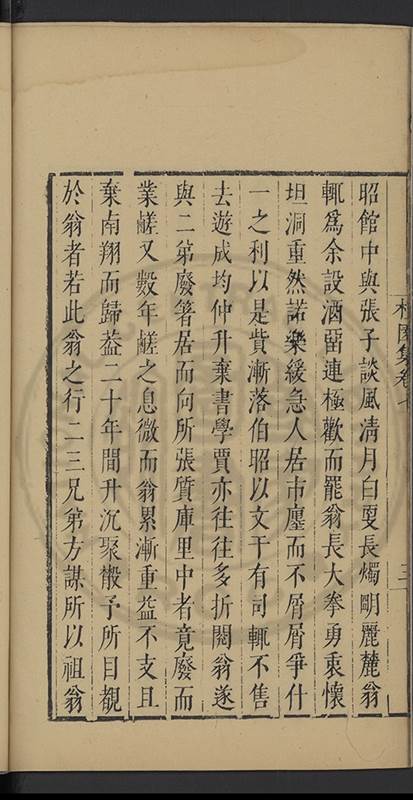 昭館中與張子談風清月白夏長燭明麗麓翁
輒為余設酒畱連極歡而罷翁長大拳勇衷懷
坦洞重然諾樂緩急人居市廛而不屑屑爭什
一之利以是貲漸落伯昭以文干有司輒不售
去遊成均仲升棄書學賈亦往往多折閱翁遂
與二弟廢箸居而向所張質庫里中者竟廢而
業鹺又數年鹺之息微而翁累漸重益不支且
棄南翔而歸葢二十年間升沉聚散予所目覩
於翁者若此翁之行二三兄弟方謀所以祖翁
集卷七
三